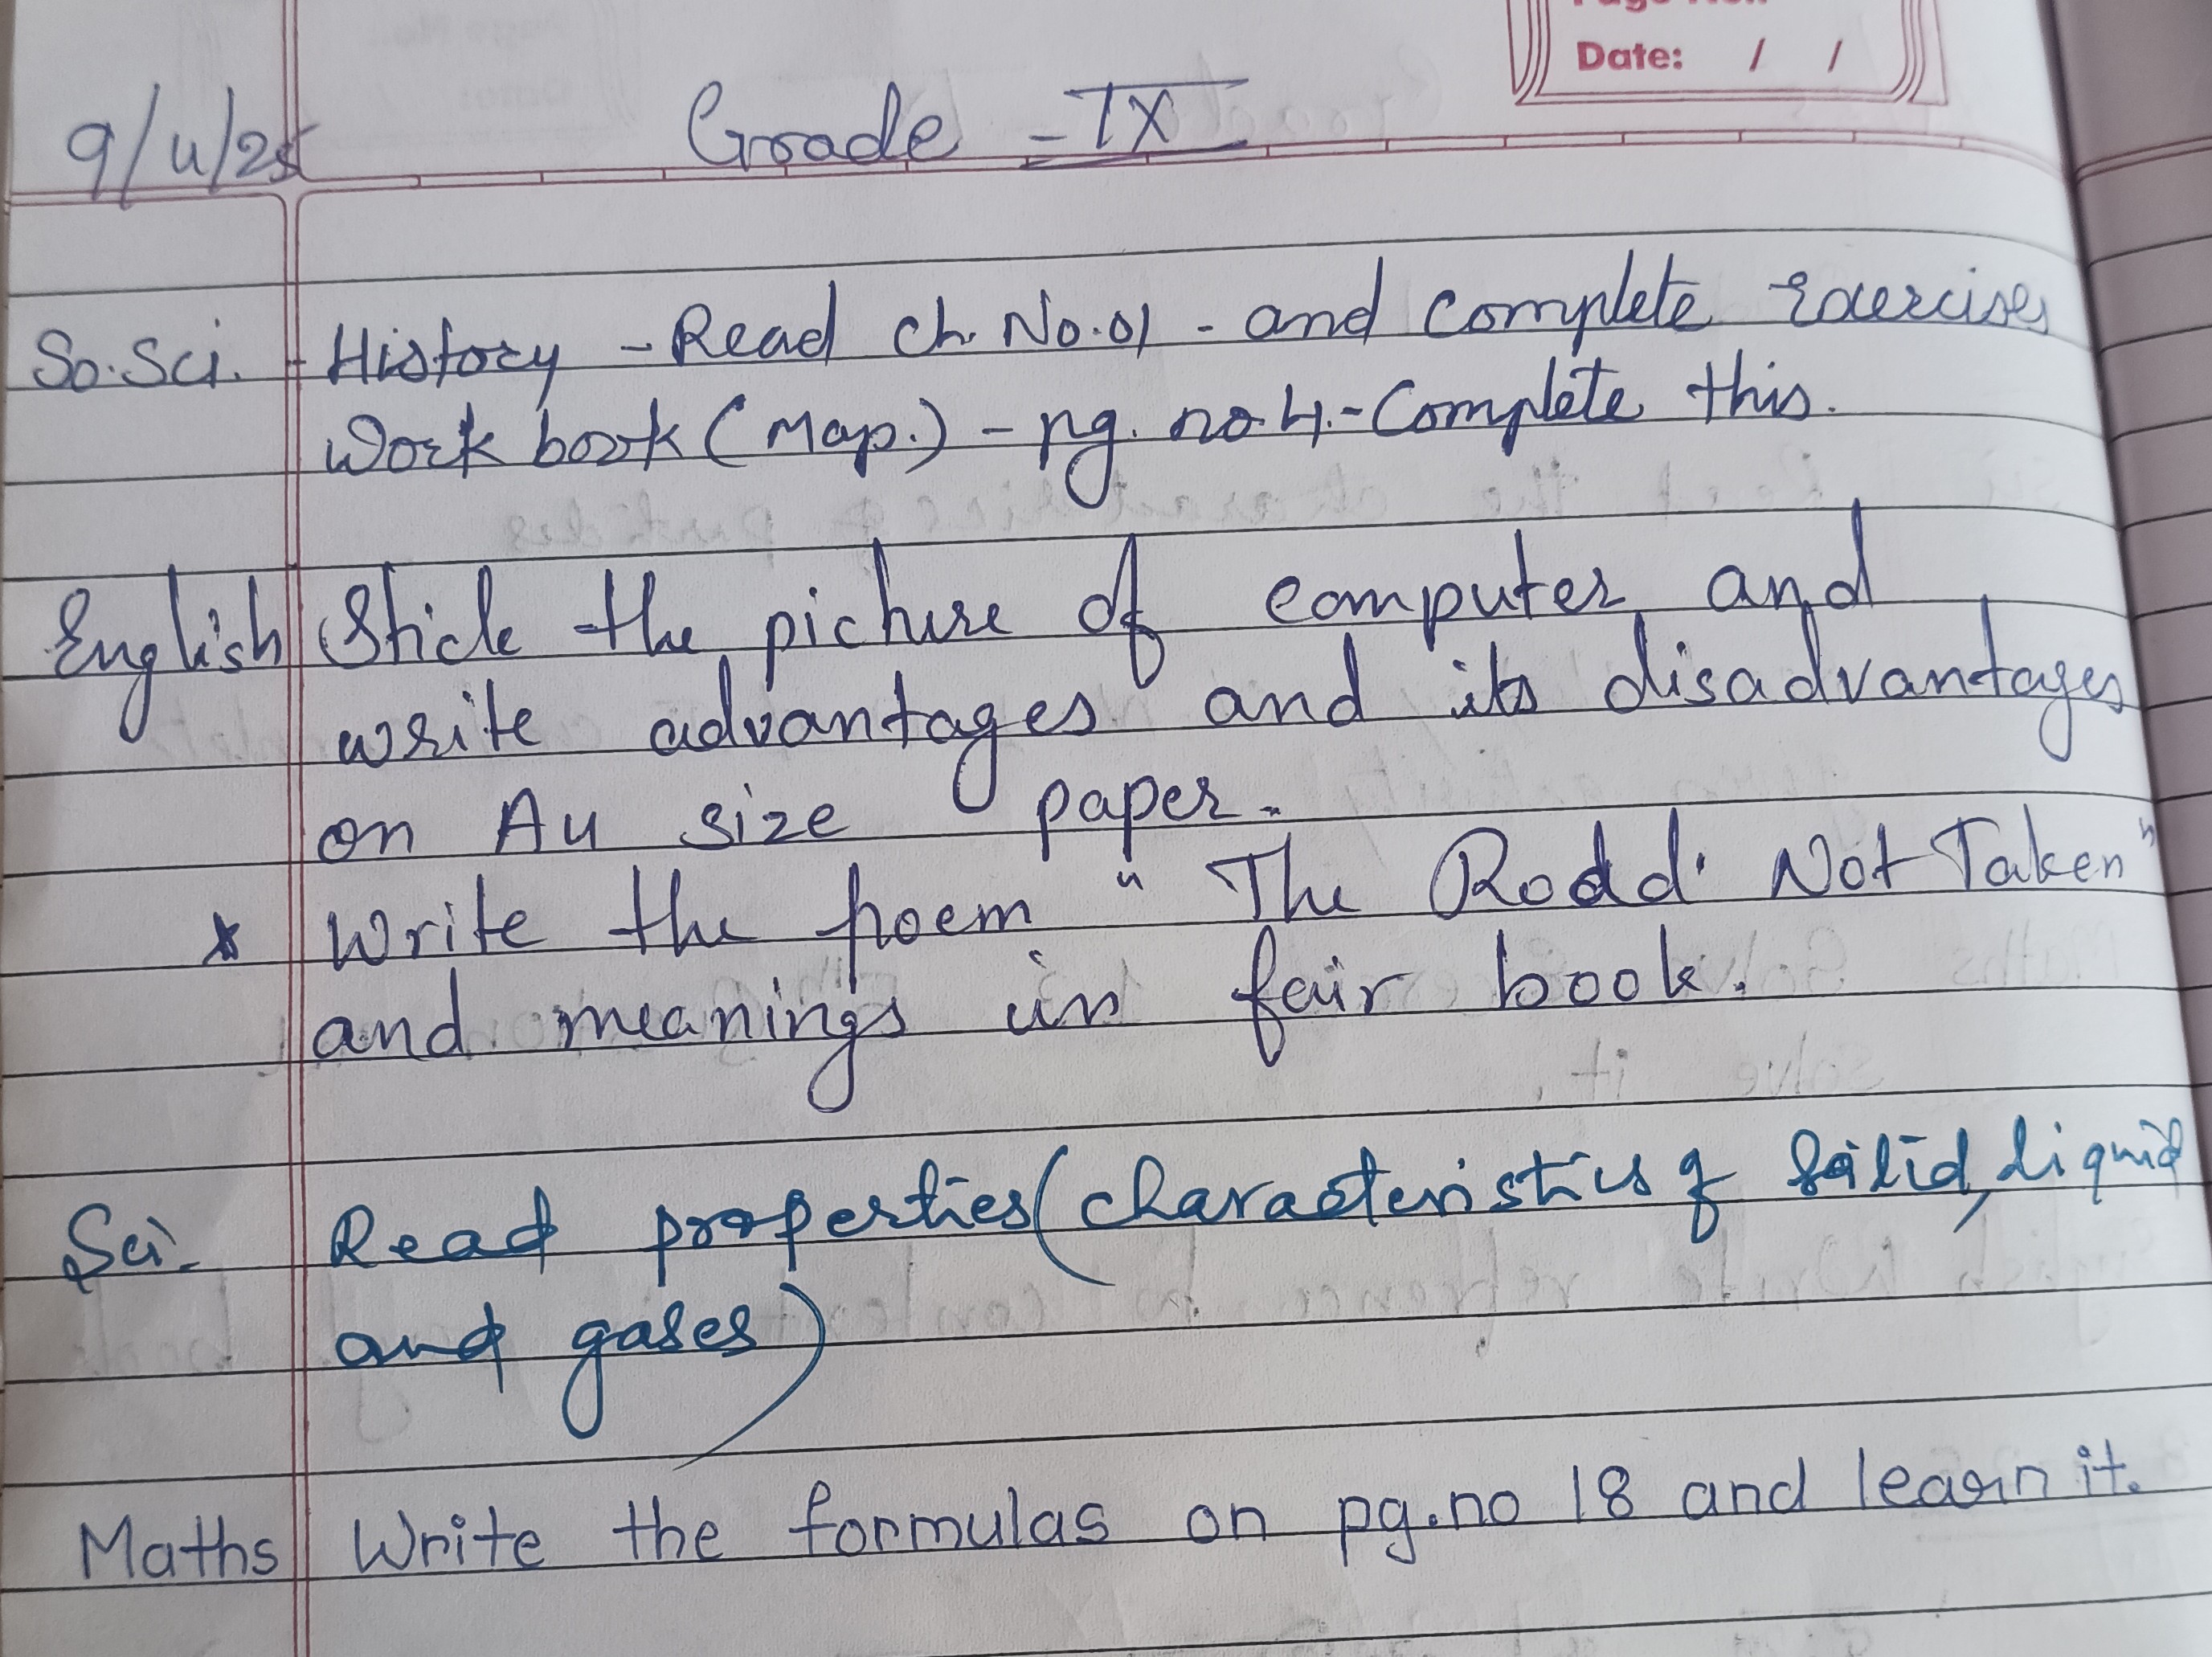 Date: / /
9/4/25 Grade - IX
So. Sci. History - Read Ch. No. 01 - and Complete Exercises
Work book (Map.) - pg. no. 4. - Complete this.
English Stick the picture of computer and
write advantages and its disadvantages
on A4 size paper.
* Write the poem "The Road Not Taken"
and meanings in fair book.
Sci. Read properties (characteristics of solid, liquid
and gases)
Maths Write the formulas on pg. no 18 and learn it.